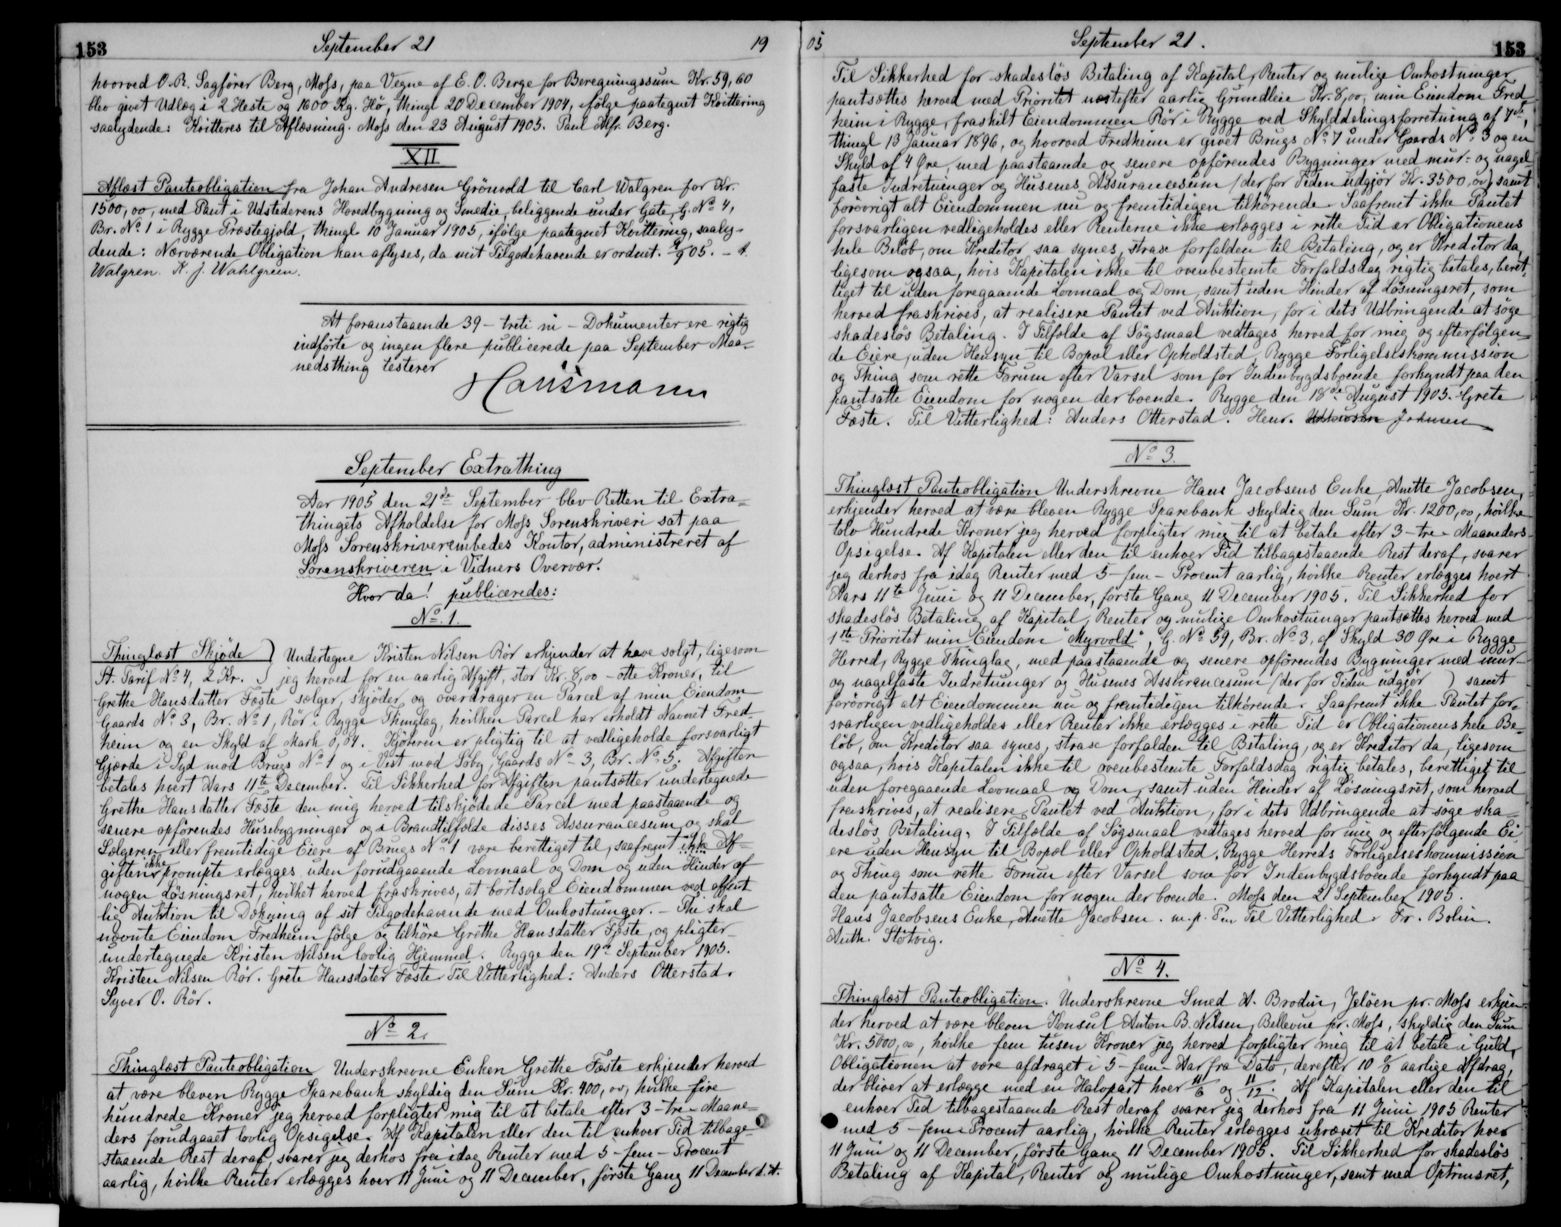 153 September 21 19
hvorved O.R. Sagfører Berg, Moss, paa Vegne af E. O. Berge for Beregningssum Kr. 59,60
blev givet Udlæg i 2 Heste og 1600 Kg. Hø, thingl. 20 December 1904, ifølge paategnet Kvittering
saalydende: Kvitteres til Aflæsning. Moss den 23 August 1905. Paul Alfr. Berg.
XII
Aflæst Panteobligation fra Johan Andresen Grönvold til Carl Walgren for Kr.
1500,00, med Pant i Udstederens Hovedbygning og Smedie, beliggende under Gate, G. No 4,
Br. No 1 i Rygge Præstegjeld, thingl. 10 Januar 1905, ifølge paategnet Kvittering, saaly-
dende: Nærværende Obligation kan aflyses, da mit Tilgodehavende er ordnet.
Walgren. K. J. Wahlgreen.
At foranstaaende 39 - treti ni - Dokumenter ere rigtig
indførte og ingen flere publicerede paa September Maa-
nedsthing testerer
Hansmann
September Extrathing
Aar 1905 den 21de September blev Retten til Extra-
thingets Afholdelse for Moss Sorenskriveri sat paa
Moss Sorenskriverembedes Kontor, administreret af
Sorenskriveren i Vidners Overvær.
Hvor da! publiceredes:
No. 1.
Thinglæst Skjøde Undertegne Kristen Nilsen Rör erkjender at have solgt, ligesom
St. Tarif No 4, 2 Kr. jeg herved for en aarlig Afgift, stor Kr. 8,00 - otte Kroner, til
Grethe Hansdatter Fæste sælger, skjøder og overdrager en Parcel af min Eiendom
Gaards No 3, Br. No 1, Rör i Rygge Thinglag, hvilken Parcel har erholdt Navnet Fred-
heim og en Skyld af Mark 0,04. Kjøberen er pligtig til at vedligeholde forsvarligt
Gjærde i Syd mod Brugs No 1 og i Vest mod Soby Gaards No 3, Br. No 5. Afgiften
betales hvert Aars 11te December. Til Sikkerhed for Afgiften pantsætter undertegnede
Grethe Hansdatter Fæste den mig herved tilskjødede Parcel med paastaaende og
senere opførendes Husebygninger og i Brandtilfælde disses Assurancesum og skal
Sælgeren eller fremtidige Eiere af Brugs No 1 være berettiget til, saafremt ikke Af-
giften ikke prompte erlægges, uden forudgaaende Lovmaal og Dom og uden Hinder af
nogen Løsningsret, hvilket herved fraskrives, at bortsælge Eiendommen ved offent
lig Auktion til Dækning af sit Tilgodehavende med Omkostninger. - Thi skal
nævnte Eiendom Fredheim følge og tilhøre Grethe Hansdatter Fæste, og pligter
undertegnede Kristen Nilsen lovlig Hjemmel. Rygge den 19de September 1905.
Kristen Nilsen Rör. Grete Hansdater Fæste. Til Vitterlighed: Anders Otterstad.
Syver O. Rör.
No 2.
Thinglæst Panteobligation Underskrevne Enken Grethe Fæste erkjender herved
at være bleven Rygge Sparebank skyldig den Sum Kr. 400,00, hvilke fire
hundrede Kroner jeg herved forpligter mig til at betale efter 3 - tre - Maane-
ders forudgaaet lovlig Opsigelse. Af Kapitalen eller den til enhver Tid tilbage-
staaende Rest deraf, svarer jeg derhos fra idag Renter med 5 - fem - Procent
aarlig, hvilke Renter erlægges hver 11 Juni og 11 December, første Gang 11 December d. A.
05 September 21. 153
Til Sikkerhed for skadesløs Betaling af Kapital, Renter og mulige Omkostninger
pantsættes herved med Prioritet næstefter aarlig Grundleie Kr. 8,00, min Eiendom Fred
heim i Rygge, fraskilt Eiendommen Rör i Rygge ved Skylddelingsforretning af 7de,
thingl. 13 Januar 1896, og hvorved Fredheim er givet Brugs No 7 under Gaards No 3 og en
Skyld af 4 Øre, med paastaaende og senere opførendes Bygninger med mur- og nagel
faste Indretninger og Husenes Assurancesum (der for Tiden udgjør Kr. 3500,00) samt
forøvrigt alt Eiendommen nu og fremtidigen tilhørende. Saafremt ikke Pantet
forsvarligen vedligeholdes eller Renterne ikke erlægges i rette Tid er Obligationens
hele Beløb, om Kreditor saa synes, strax forfalden til Betaling, og er Kreditor da,
ligesom ogsaa, hvis Kapitalen ikke til ovenbestemte Forfaldsdag rigtig betales, beret-
tiget til uden foregaaende Lovmaal og Dom, samt uden Hinder af Løsningsret, som
herved fraskrives, at realisere Pantet ved Auktion, for i dets Udbringende at søge
skadesløs Betaling. I Tilfælde af Søgsmaal vedtages herved for mig og efterfølgen-
de Eiere, uden Hensyn til Bopæl eller Opholdsted, Rygge Forligelseskommission
og Thing som rette Forum efter Varsel som for Indenbygdsboende forkyndt paa den
pantsatte Eiendom for nogen der boende. Rygge den 18de August 1905. Grete
Fæste. Til Vitterlighed: Anders Otterstad. Henr. Johnsen
No 3.
Thinglæst Panteobligation Underskrevne Hans Jacobsens Enke, Anette Jacobsen,
erkjender herved at være bleven Rygge Sparebank skyldig den Sum Kr. 1200,00, hvilke
tolv Hundrede Kroner jeg herved forpligter mig til at betale efter 3 - tre - Maaneders
Opsigelse. Af Kapitalen eller den til enhver Tid tilbagestaaende Rest deraf, svarer
jeg derhos fra idag Renter med 5 - fem - Procent aarlig, hvilke Renter erlægges hvert
Aars 11te Juni og 11 December, første Gang 11 December 1905. Til Sikkerhed for
skadesløs Betaling af Kapital, Renter og mulige Omkostninger pantsættes herved med
1ste Prioritet min Eiendom "Myrvold", G. No 59, Br. No 3, af Skyld 30 Øre i Rygge
Herred, Rygge Thinglag, med paastaaende og senere opførendes Bygninger med mur-
og nagelfaste Indretninger og Husenes Assurancesum (der for Tiden udgjør ) samt
forøvrigt alt Eiendommen nu og fremtidigen tilhørende. Saafremt ikke Pantet for-
svarligen vedligeholdes eller Renter ikke erlægges i rette Tid er Obligationens hele Be-
løb, om Kreditor saa synes, strax forfalden til Betaling, og er Kreditor da, ligesom
ogsaa, hvis Kapitalen ikke til ovenbestemte Forfaldsdag rigtig betales, berettiget til
uden foregaaende Lovmaal og Dom, samt uden Hinder af Løsningsret, som herved
fraskrives, at realisere Pantet ved Auktion, for i dets Udbringende at søge ska-
desløs Betaling. I Tilfælde af Søgsmaal vedtages herved for mig og efterfølgende Ei-
ere uden Hensyn til Bopæl eller Opholdsted, Rygge Herreds Forligelseskommission
og Thing som rette Forum efter Varsel som for Indenbygdsboende forkyndt paa
den pantsatte Eiendom for nogen der boende. Moss den 21 September 1905.
Hans Jacobsens Enke, Anette Jacobsen. m. p. P. Til Vitterlighed. Fr. Bolin.
Anth. Støtvig.
No 4.
Thinglæst Panteobligation. Underskrevne Smed A. Brodin, Jeløen pr. Moss, erkjen-
der herved at være bleven Konsul Anton B. Nilsen, Bellevue pr. Moss, skyldig den Sum
Kr. 5000,00, hvilke fem tusen Kroner jeg herved forpligter mig til at betale i Guld,
Obligationen at være afdraget i 5 - fem - Aar fra Dato, derefter 10 % aarlige Afdrag,
der bliver at erlægge med en Halvpart hver 11/6 og 11/12. Af Kapitalen eller den til
enhver Tid tilbagestaaende Rest deraf svarer jeg derhos fra 11 Juni 1905 Renter
med 5 - fem - Procent aarlig, hvilke Renter erlægges ukrævet til Kreditor hver
11 Juni og 11 December, første Gang 11 December 1905. Til Sikkerhed for skadesløs
Betaling af Kapital, Renter og mulige Omkostninger, samt med Optrinsret,